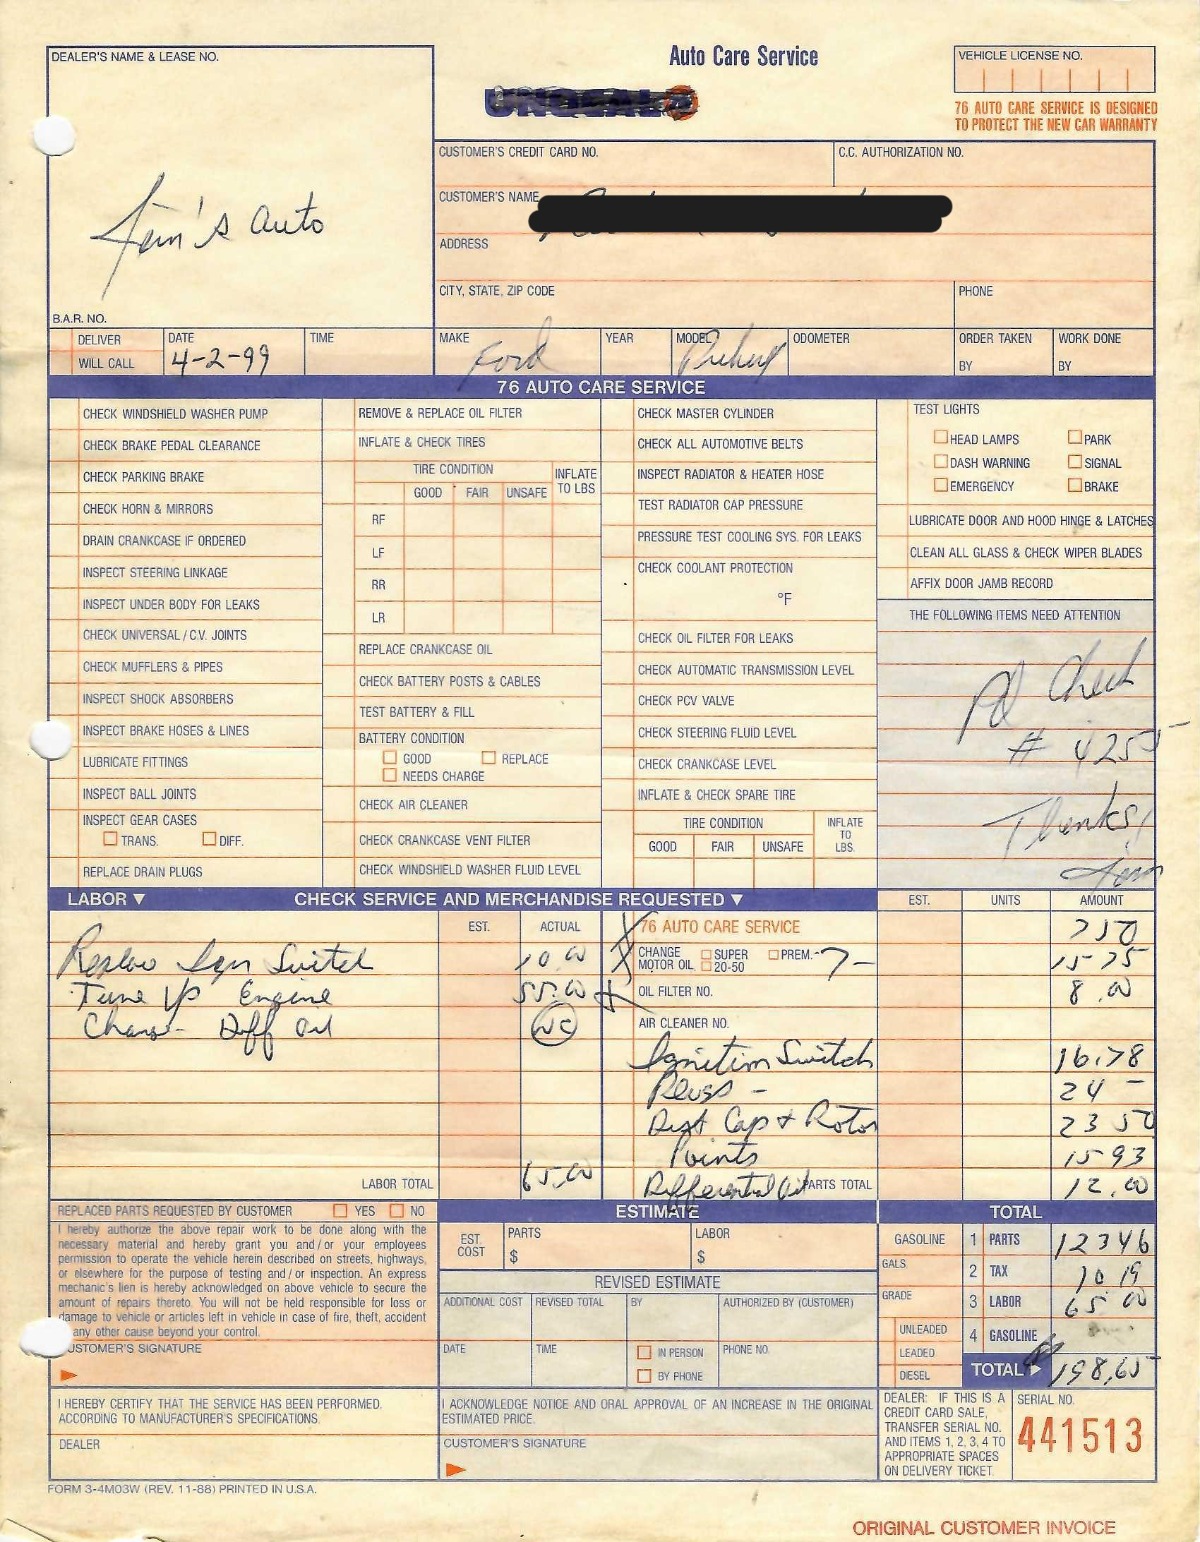 DEALER'S NAME & LEASE NO.
Auto Care Service
VEHICLE LICENSE NO.
UNOCAL 76
76 AUTO CARE SERVICE IS DESIGNED
TO PROTECT THE NEW CAR WARRANTY
CUSTOMER'S CREDIT CARD NO.
C.C. AUTHORIZATION NO.
CUSTOMER'S NAME
Jim's Auto
ADDRESS
CITY, STATE, ZIP CODE
PHONE
B.A.R. NO.
DELIVER
WILL CALL
DATE
4-2-99
TIME
MAKE
Ford
YEAR
MODEL
Pickup
ODOMETER
ORDER TAKEN
BY
WORK DONE
BY
76 AUTO CARE SERVICE
CHECK WINDSHIELD WASHER PUMP
CHECK BRAKE PEDAL CLEARANCE
CHECK PARKING BRAKE
CHECK HORN & MIRRORS
DRAIN CRANKCASE IF ORDERED
INSPECT STEERING LINKAGE
INSPECT UNDER BODY FOR LEAKS
CHECK UNIVERSAL / C.V. JOINTS
CHECK MUFFLERS & PIPES
INSPECT SHOCK ABSORBERS
INSPECT BRAKE HOSES & LINES
LUBRICATE FITTINGS
INSPECT BALL JOINTS
INSPECT GEAR CASES
TRANS. DIFF.
REPLACE DRAIN PLUGS
REMOVE & REPLACE OIL FILTER
INFLATE & CHECK TIRES
TIRE CONDITION
INFLATE
TO LBS
GOOD FAIR UNSAFE
RF
LF
RR
LR
REPLACE CRANKCASE OIL
CHECK BATTERY POSTS & CABLES
TEST BATTERY & FILL
BATTERY CONDITION
GOOD REPLACE
NEEDS CHARGE
CHECK AIR CLEANER
CHECK CRANKCASE VENT FILTER
CHECK WINDSHIELD WASHER FLUID LEVEL
CHECK MASTER CYLINDER
CHECK ALL AUTOMOTIVE BELTS
INSPECT RADIATOR & HEATER HOSE
TEST RADIATOR CAP PRESSURE
PRESSURE TEST COOLING SYS. FOR LEAKS
CHECK COOLANT PROTECTION
°F
CHECK OIL FILTER FOR LEAKS
CHECK AUTOMATIC TRANSMISSION LEVEL
CHECK PCV VALVE
CHECK STEERING FLUID LEVEL
CHECK CRANKCASE LEVEL
INFLATE & CHECK SPARE TIRE
TIRE CONDITION
INFLATE
TO
LBS.
GOOD FAIR UNSAFE
TEST LIGHTS
HEAD LAMPS PARK
DASH WARNING SIGNAL
EMERGENCY BRAKE
LUBRICATE DOOR AND HOOD HINGE & LATCHES
CLEAN ALL GLASS & CHECK WIPER BLADES
AFFIX DOOR JAMB RECORD
THE FOLLOWING ITEMS NEED ATTENTION
Pd Check
# 4255
Thanks!
Jim
LABOR ▼ CHECK SERVICE AND MERCHANDISE REQUESTED ▼
EST. UNITS AMOUNT
EST. ACTUAL
Ign Switch 10.00
Tune Up Engine 55.00
Diff Oil NC
LABOR TOTAL 65.00
76 AUTO CARE SERVICE 7 50
CHANGE
MOTOR OIL SUPER PREM. 7- 15-75
20-50
OIL FILTER NO. 8.00
AIR CLEANER NO.
Ignition Switch 16.78
Plugs - 24 -
Dist Cap & Rotor 23 50
Points 15 93
Differential Oil PARTS TOTAL 12.00
REPLACED PARTS REQUESTED BY CUSTOMER YES NO
I hereby authorize the above repair work to be done along with the
necessary material and hereby grant you and/or your employees
permission to operate the vehicle herein described on streets, highways,
or elsewhere for the purpose of testing and/or inspection. An express
mechanic's lien is hereby acknowledged on above vehicle to secure the
amount of repairs thereto. You will not be held responsible for loss or
damage to vehicle or articles left in vehicle in case of fire, theft, accident
any other cause beyond your control.
CUSTOMER'S SIGNATURE
ESTIMATE
EST.
COST
PARTS
$
LABOR
$
REVISED ESTIMATE
ADDITIONAL COST REVISED TOTAL BY AUTHORIZED BY (CUSTOMER)
DATE TIME IN PERSON PHONE NO.
BY PHONE
TOTAL
GASOLINE 1 PARTS 123 46
GALS. 2 TAX 10 19
GRADE 3 LABOR 65 00
UNLEADED 4 GASOLINE
LEADED
DIESEL TOTAL 198,65
I HEREBY CERTIFY THAT THE SERVICE HAS BEEN PERFORMED.
ACCORDING TO MANUFACTURER'S SPECIFICATIONS.
DEALER
I ACKNOWLEDGE NOTICE AND ORAL APPROVAL OF AN INCREASE IN THE ORIGINAL
ESTIMATED PRICE.
CUSTOMER'S SIGNATURE
DEALER: IF THIS IS A
CREDIT CARD SALE,
TRANSFER SERIAL NO.
AND ITEMS 1, 2, 3, 4 TO
APPROPRIATE SPACES
ON DELIVERY TICKET.
SERIAL NO.
441513
FORM 3-4M03W (REV. 11-88) PRINTED IN U.S.A.
ORIGINAL CUSTOMER INVOICE